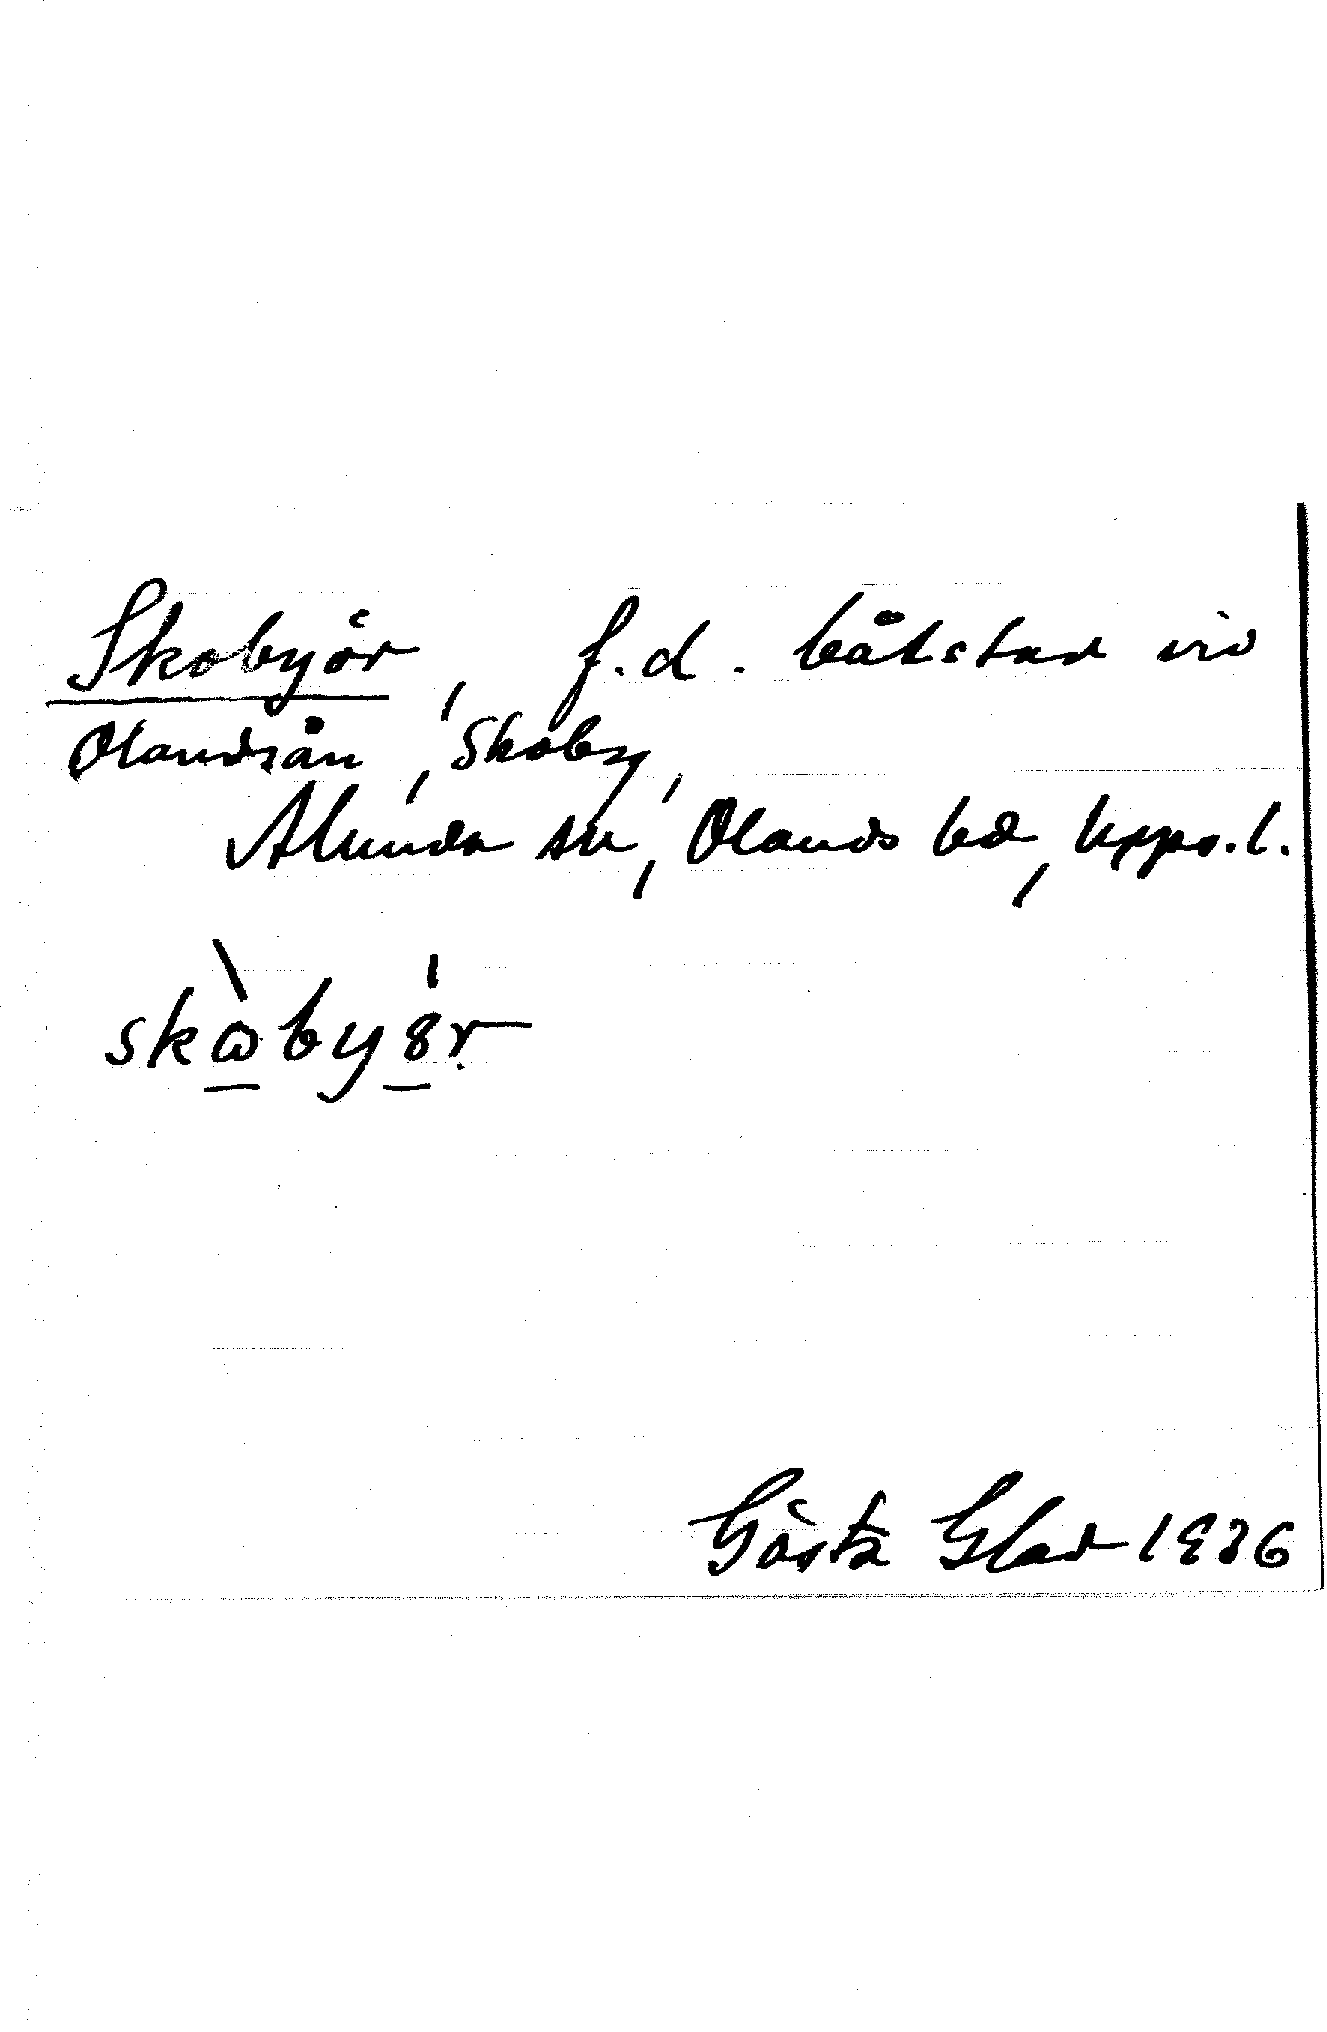 Skobyör, f.d. båtstad vid
Olandsån, Skoby,
Alunda sn, Olands hd, Upps.l.
skὼby8́r
Gösta Glad 1936